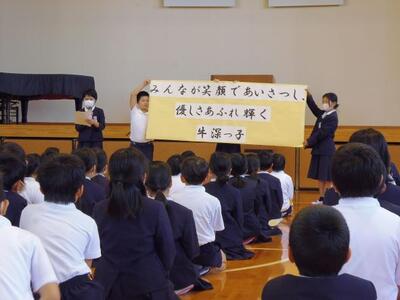 みんなが笑顔であいさつし、
優しさあふれ輝く
牛深っ子